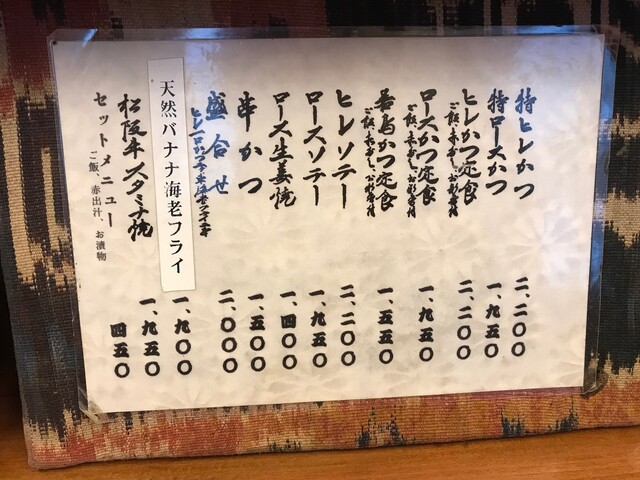 特ヒレかつ 二、二〇〇
特ロースかつ 一、九五〇
ヒレかつ定食 二、二〇〇
ご飯、赤だし、お新香付
ロースかつ定食 一、九五〇
ご飯、赤だし、お新香付
若鳥かつ定食 一、五五〇
ご飯、赤だし、お新香付
ヒレソテー 二、二〇〇
ロースソテー 一、九五〇
ロース生姜焼 一、四〇〇
串かつ 一、五〇〇
盛合せ 二、〇〇〇
天然バナナ海老フライ 一、九〇〇
松阪牛スタミナ焼 一、九五〇
セットメニュー 四五〇
ご飯、赤出汁、お漬物